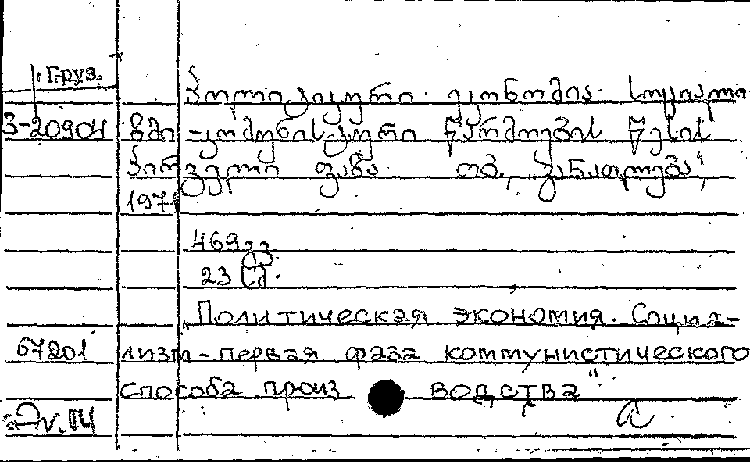 Груз.
პოლიტიკური ეკონომია. სოციალი-
3-20904 ზმი - კომუნისტური წარმოების წესის
პირველი ფაზა. თბ., "განათლება",
197
469 გვ
23 სმ.
„Политическая экономия. Социа-
67201 лизм - первая фаза коммунистического
способа произ водства"